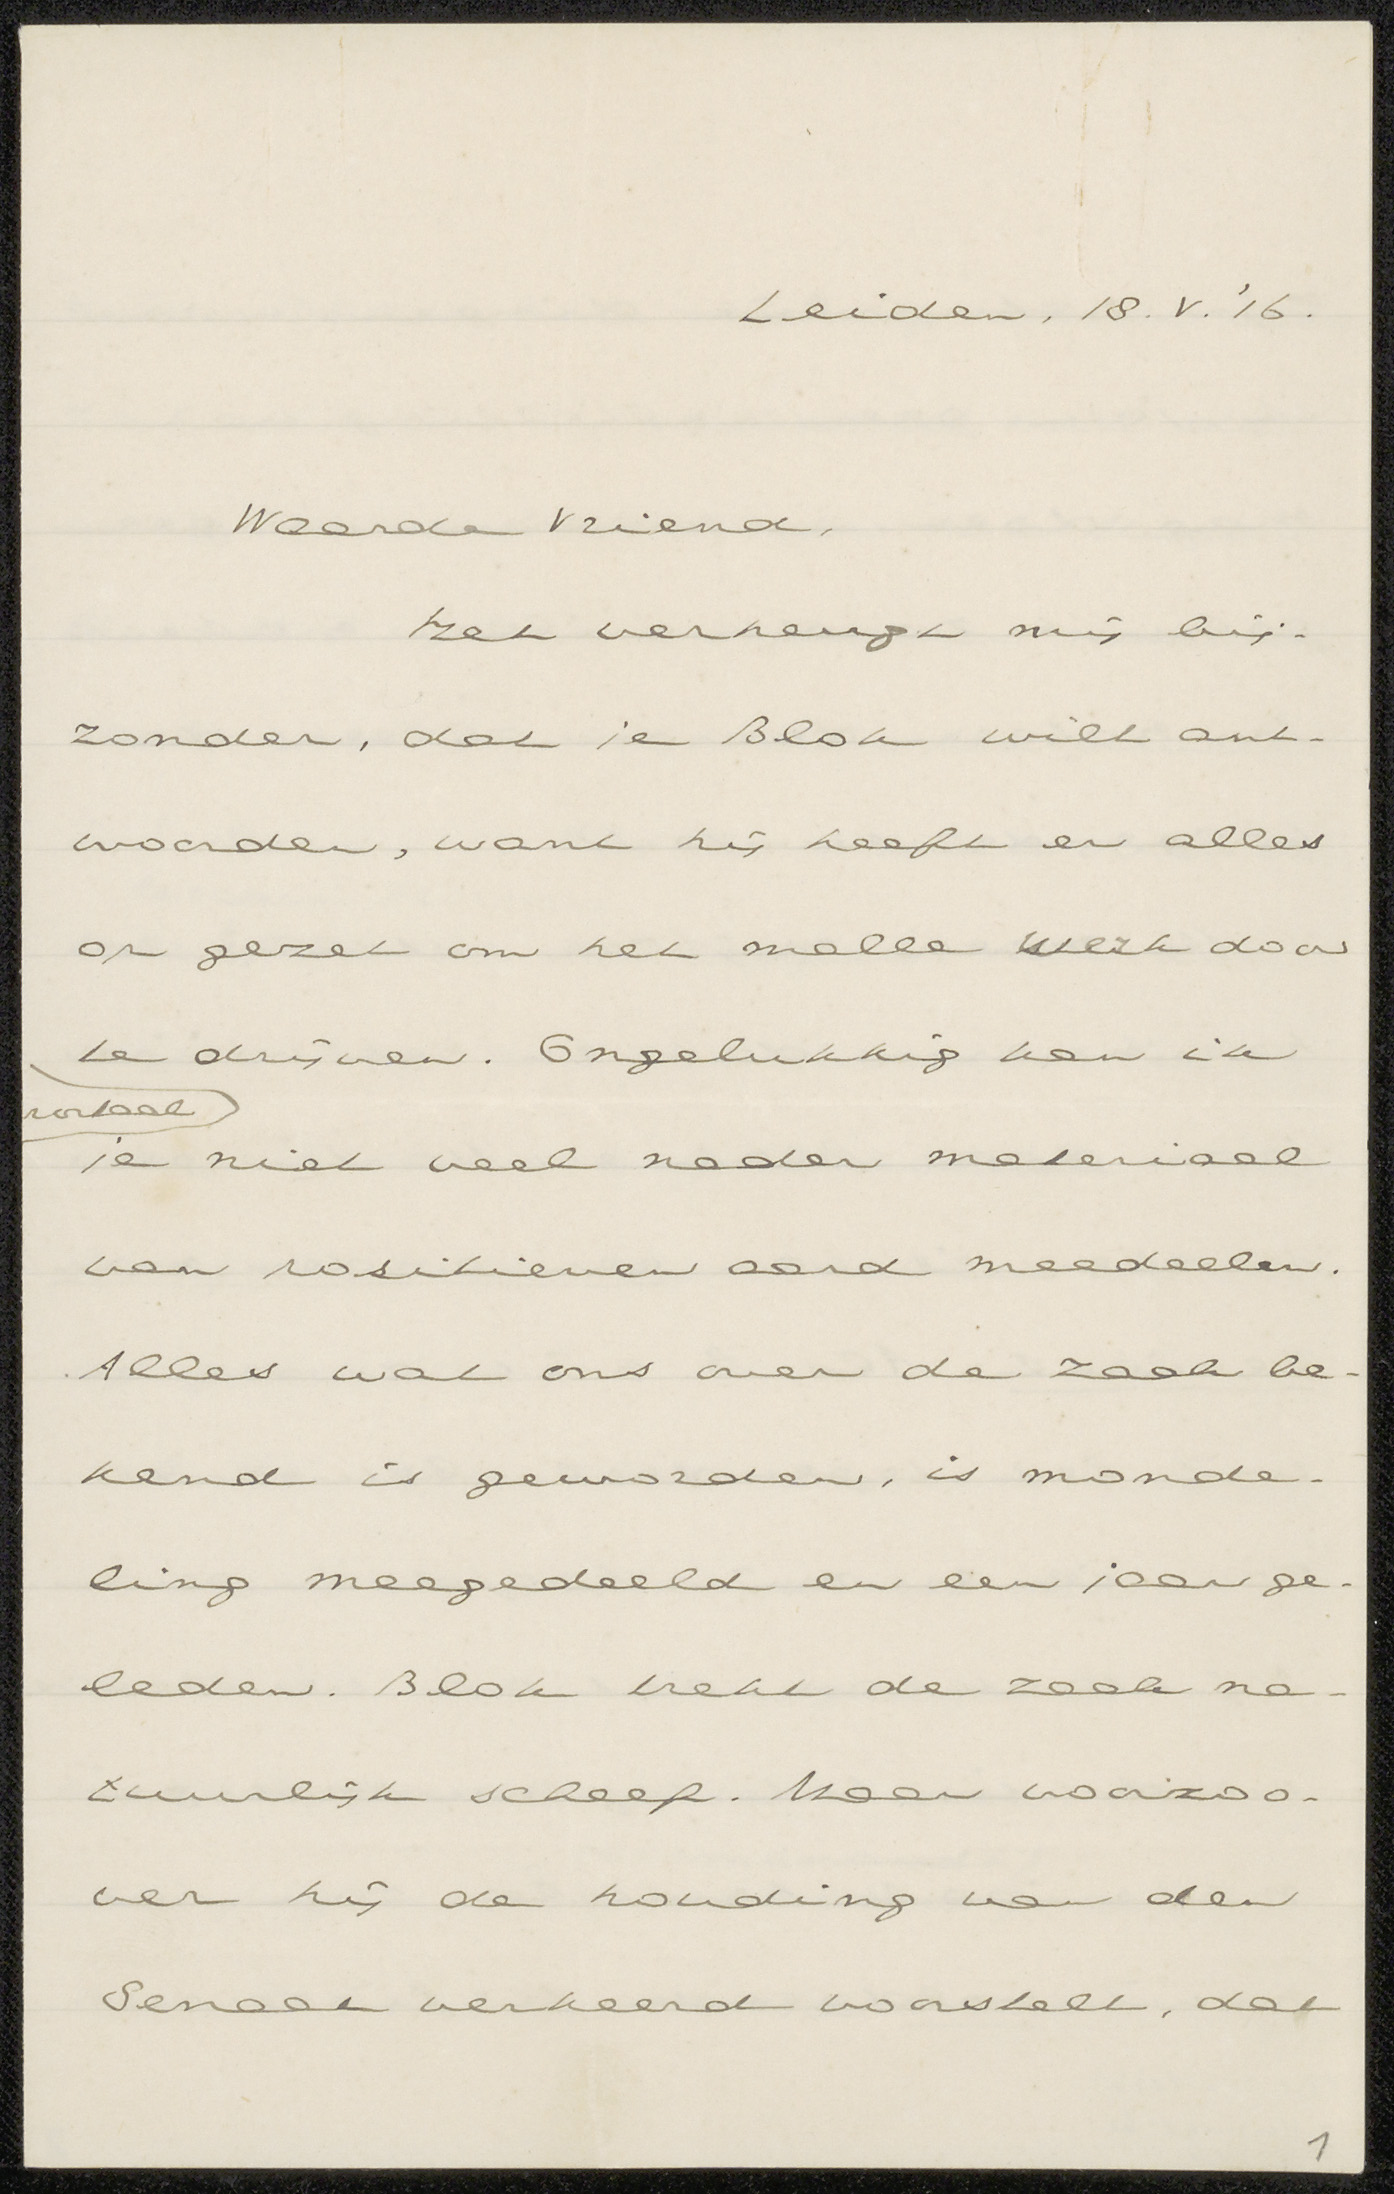 Leiden, 18.V.'16.
Waarde Vriend,
Het verheugt mij bij-
zonder, dat je Blok wilt ant-
woorden, want hij heeft er alles
op gezet om het malle werk door
te drijven. Ongelukkig kan ik
je niet veel nader materiaal
van positieven aard meedeelen.
Alles wat ons over de zaak be-
kend is geworden, is monde-
ling meegedeeld en een jaar ge-
leden. Blok trekt de zaak na-
tuurlijk scheef. Maar voorzoo-
ver hij de houding van den
Senaat verkeerd voorstelt, dat
1